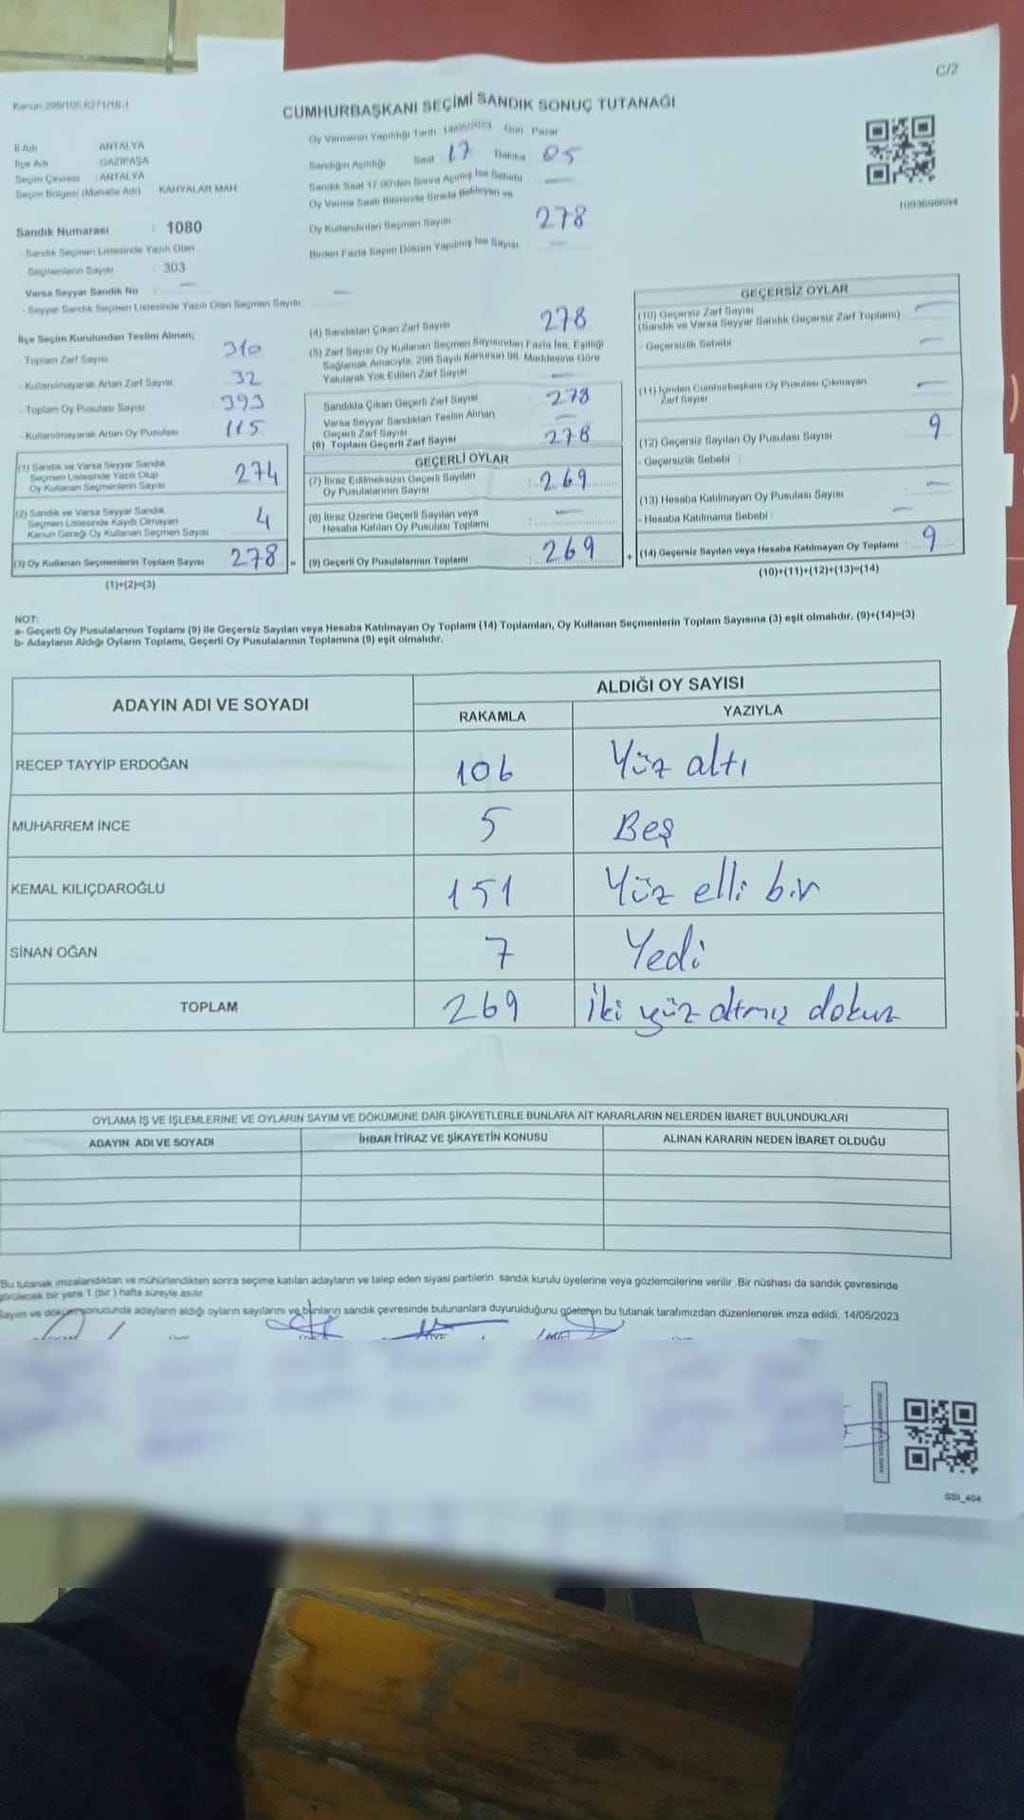 C/2
CUMHURBAŞKANI SEÇİMİ SANDIK SONUÇ TUTANAĞI
İl Adı : ANTALYA
İlçe Adı : GAZİPAŞA
Seçim Çevresi : ANTALYA
Seçim Bölgesi (Mahalle Adı) : KAHYALAR MAH
Sandık Numarası : 1080
- Sandık Seçmen Listesinde Yazılı Olan
Seçmenlerin Sayısı : 303
Varsa Seyyar Sandık No
- Seyyar Sandık Seçmen Listesinde Yazılı Olan Seçmen Sayısı
Oy Vermenin Yapıldığı Tarih 14/05/2023 Gün Pazar
Sandığın Açıldığı Saat 17 Dakika 05
Sandık Saat 17.00'den Sonra Açılmış İse Sebebi
Oy Verme Saati Bitiminde Sırada Bekleyen ve
Oy Kullandırılan Seçmen Sayısı 278
Birden Fazla Sayım Döküm Yapılmış İse Sayısı
1093698694
İlçe Seçim Kurulundan Teslim Alınan;
- Toplam Zarf Sayısı 310
- Kullanılmayarak Artan Zarf Sayısı 32
- Toplam Oy Pusulası Sayısı 393
- Kullanılmayarak Artan Oy Pusulası 115
(1) Sandık ve Varsa Seyyar Sandık
Seçmen Listesinde Yazılı Olup
Oy Kullanan Seçmenlerin Sayısı 274
(2) Sandık ve Varsa Seyyar Sandık
Seçmen Listesinde Kayıtlı Olmayan
Kanun Gereği Oy Kullanan Seçmen Sayısı 4
(3) Oy Kullanan Seçmenlerin Toplam Sayısı 278 =
(1)+(2)=(3)
(4) Sandıktan Çıkan Zarf Sayısı 278
(5) Zarf Sayısı Oy Kullanan Seçmen Sayısından Fazla İse, Eşitliği
Sağlamak Amacıyla, 298 Sayılı Kanunun 98. Maddesine Göre
Yakılarak Yok Edilen Zarf Sayısı
Sandıkta Çıkan Geçerli Zarf Sayısı 278
Varsa Seyyar Sandıktan Teslim Alınan
Geçerli Zarf Sayısı
(6) Toplam Geçerli Zarf Sayısı 278
GEÇERLİ OYLAR
(7) İtiraz Edilmeksizin Geçerli Sayılan
Oy Pusulalarının Sayısı 269
(8) İtiraz Üzerine Geçerli Sayılan veya
Hesaba Katılan Oy Pusulası Toplamı
(9) Geçerli Oy Pusulalarının Toplamı 269 +
GEÇERSİZ OYLAR
(10) Geçersiz Zarf Sayısı
(Sandık ve Varsa Seyyar Sandık Geçersiz Zarf Toplamı)
- Geçersizlik Sebebi
(11) İçinden Cumhurbaşkanı Oy Pusulası Çıkmayan
Zarf Sayısı
(12) Geçersiz Sayılan Oy Pusulası Sayısı 9
- Geçersizlik Sebebi :
(13) Hesaba Katılmayan Oy Pusulası Sayısı
- Hesaba Katılmama Sebebi :
(14) Geçersiz Sayılan veya Hesaba Katılmayan Oy Toplamı : 9
(10)+(11)+(12)+(13)=(14)
NOT:
a- Geçerli Oy Pusulalarının Toplamı (9) ile Geçersiz Sayılan veya Hesaba Katılmayan Oy Toplamı (14) Toplamları, Oy Kullanan Seçmenlerin Toplam Sayısına (3) eşit olmalıdır. (9)+(14)=(3)
b- Adayların Aldığı Oyların Toplamı, Geçerli Oy Pusulalarının Toplamına (9) eşit olmalıdır.
ADAYIN ADI VE SOYADI ALDIĞI OY SAYISI
RAKAMLA YAZIYLA
RECEP TAYYİP ERDOĞAN 106 Yüz altı
MUHARREM İNCE 5 Beş
KEMAL KILIÇDAROĞLU 151 Yüz elli bir
SİNAN OĞAN 7 Yedi
TOPLAM 269 İki yüz altmış dokuz
OYLAMA İŞ VE İŞLEMLERİNE VE OYLARIN SAYIM VE DÖKÜMÜNE DAİR ŞİKAYETLERLE BUNLARA AİT KARARLARIN NELERDEN İBARET BULUNDUKLARI
ADAYIN ADI VE SOYADI İHBAR İTİRAZ VE ŞİKAYETİN KONUSU ALINAN KARARIN NEDEN İBARET OLDUĞU
Bu tutanak, imzalandıktan ve mühürlendikten sonra seçime katılan adayların ve talep eden siyasi partilerin sandık kurulu üyelerine veya gözlemcilerine verilir. Bir nüshası da sandık çevresinde
görülecek bir yere 1 (bir) hafta süreyle asılır.
Sayım ve döküm sonucunda adayların aldığı oyların sayılarını ve bunların sandık çevresinde bulunanlara duyurulduğunu gösteren bu tutanak tarafımızdan düzenlenerek imza edildi. 14/05/2023
SSI_404